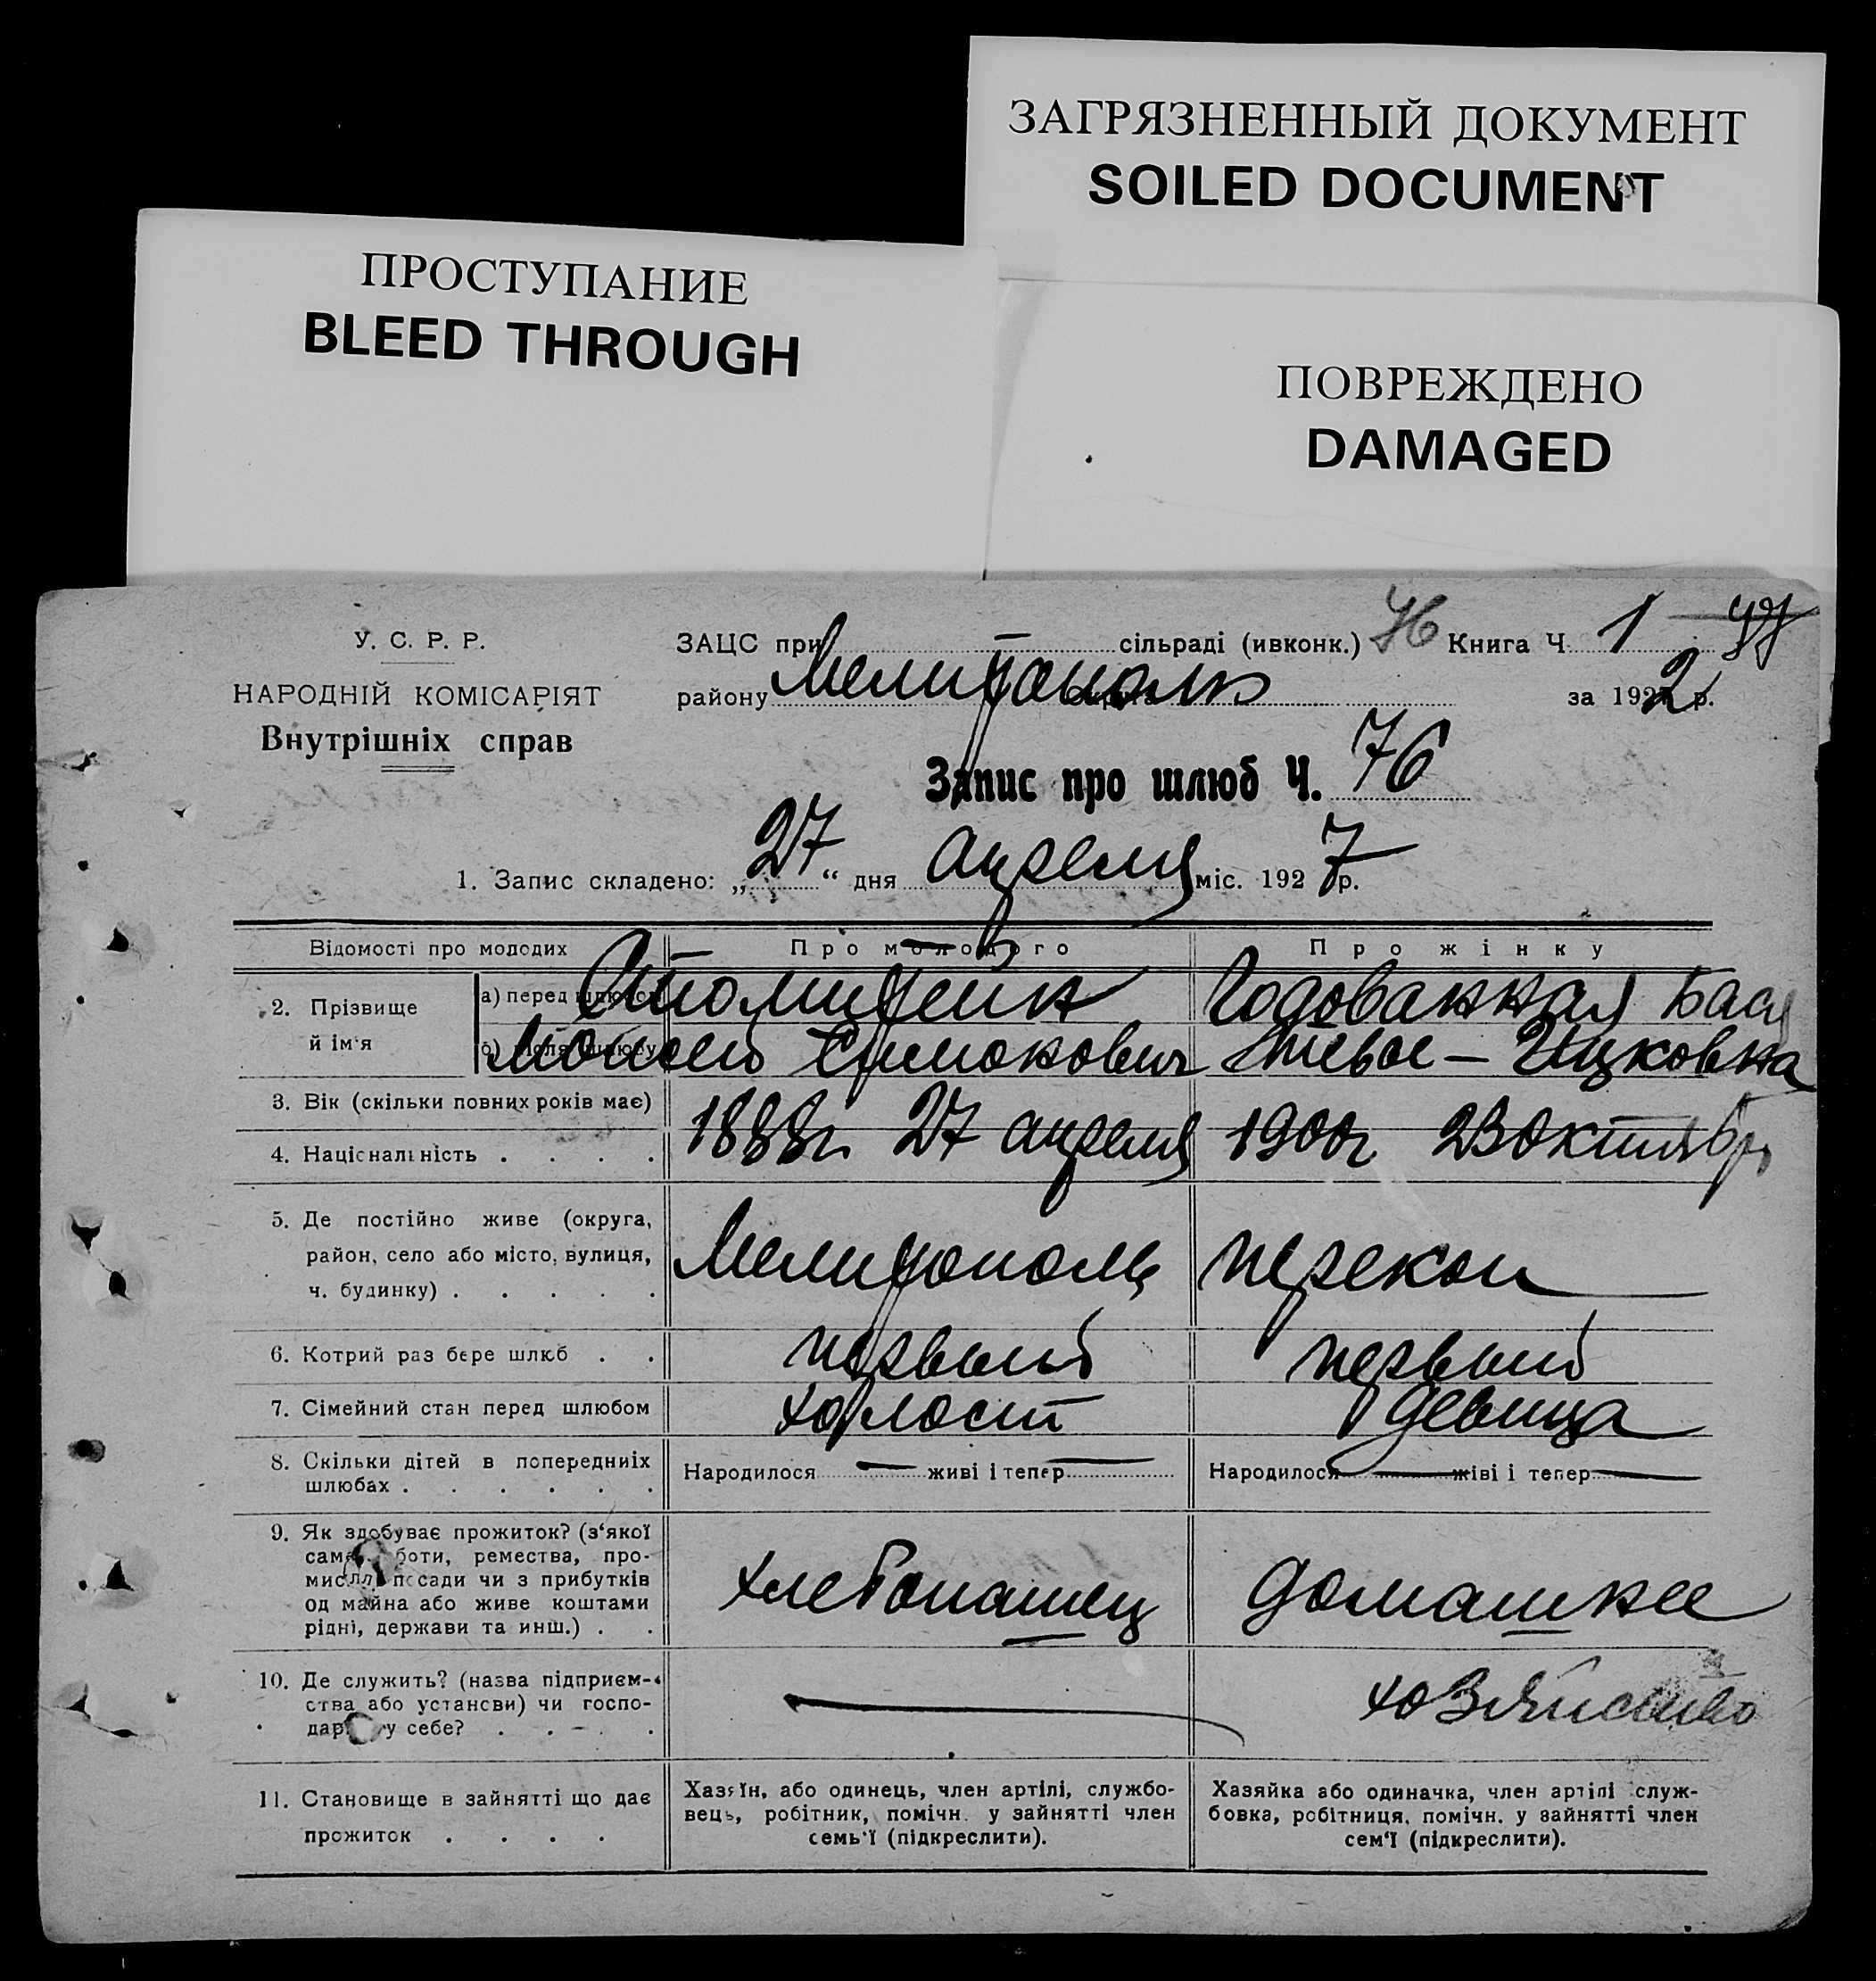 ЗАГРЯЗНЕННЫЙ ДОКУМЕНТ
SOILED DOCUMENT
ПРОСТУПАНИЕ
BLEED THROUGH
ПОВРЕЖДЕНО
DAMAGED
У. С. Р. Р.
НАРОДНІЙ КОМІСАРІЯТ
Внутрішніх справ
ЗАЦС при — сільраді (ивконк.) 76 Книга Ч. 1
району Мелитополь за 192 2 р.
Запис про шлюб Ч. 76
1. Запис складено: „27“ дня апреля міс. 1927 р.
Відомості про молодих Про молодого Про жінку
2. Прізвище й ім'я
а) перед шлюбом
б) після шлюбу
Годованная Бася
Моисей Симонович
Ицковна
3. Вік (скільки повних років має)
4. Національність . . . .
1888г. 27 апреля 1900г 23 октябр
5. Де постійно живе (округа,
район, село або місто, вулиця,
ч. будинку) . . . . .
Мелитополь перекоп
6. Котрий раз бере шлюб . . первый первый
7. Сімейний стан перед шлюбом холост девица
8. Скільки дітей в попередниіх
шлюбах . . . . . .
Народилося — живі і тепер — Народилося — живі і тепер —
9. Як здобуває прожиток? (з'якої
саме роботи, ремества, про-
мислл, посади чи з прибутків
од майна або живе коштами
рідні, держави та инш.) . .
хлебопашец домашнее
10. Де служить? (назва підприєм-
ства або устансви) чи госпо-
дарює у себе? . . . .
— хозяйство
11. Становище в зайнятті що дає
прожиток . . . .
Хазяїн, або одинець, член артілі, службо-
вець, робітник, помічн. у зайнятті член
семь'ї (підкреслити).
Хазяйка або одиначка, член артілі служ-
бовка, робітниця, помічн. у зайнятті член
сем'ї (підкреслити).